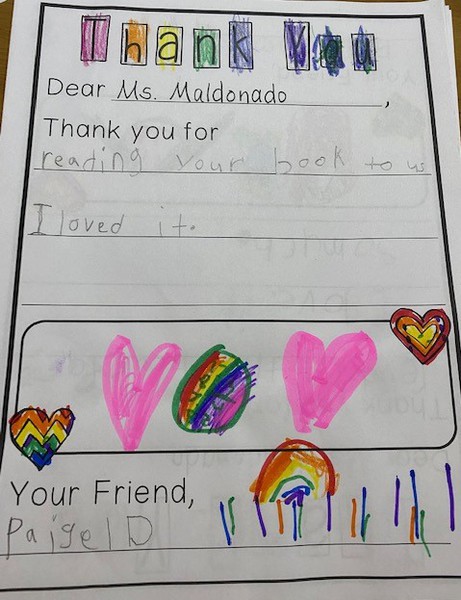 Thank You
Dear Ms. Maldonado,
Thank you for
reading your book to us
I loved it.
Your Friend,
Paige D